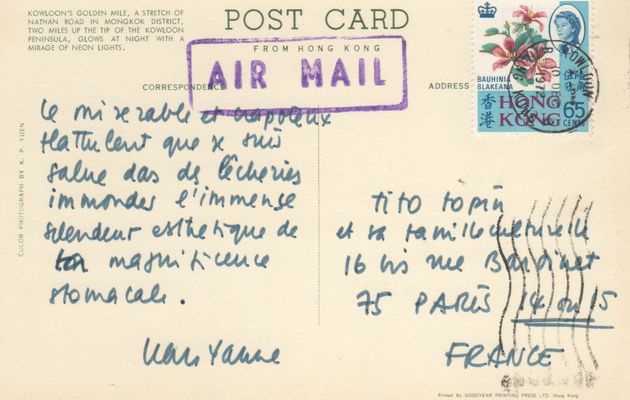 KOWLOON'S GOLDEN MILE, A STRETCH OF
NATHAN ROAD IN MONGKOK DISTRICT,
TWO MILES UP THE TIP OF THE KOWLOON
PENINSULA, GLOWS AT NIGHT WITH A
MIRAGE OF NEON LIGHTS.
POST CARD
FROM HONG KONG
AIR MAIL
CORRESPONDENCE
ADDRESS
BAUHINIA
BLAKEANA
香港
HONG
KONG
65
CENTS
KOWLOON
1972
HONG KONG
COLOR PHOTOGRAPH BY K. P. YUEN
Le misérable et crapoleux
flatulent que je suis
salue das de lècheries
immondes l'immense
splendeur esthétique de
ta magnificence
stomacale.
Yanne
Tito Topin
et sa famille culturelle
16 bis rue Bardinet
75 PARIS 14 ou 15
FRANCE
Printed by GOODYEAR PRINTING PRESS LTD. Hong Kong